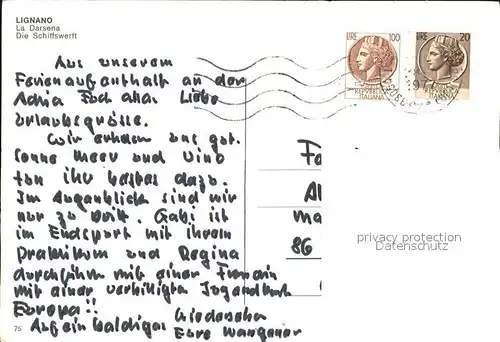 LIGNANO
La Darsena
Die Schiffswerft
LIRE 100
LIRE 20
Aus unserem
Ferienaufenthalt an der
Adria Euch allen Liebe
Urlaubsgrüsse.
Wir erholen uns gut.
Sonne Meer und Vino
tun ihr bestes dazu.
Im Augenblick sind wir
nur zu dritt. Gabi ist
im Endspurt mit ihrem
Praktikum und Regina
mit einer
Europa!!
Auf ein baldiges Wiedersehn
Eure Wangener
Fa
Al
Ma
86
privacy protection
Datenschutz
REPUBBLICA
ITALIANA
75